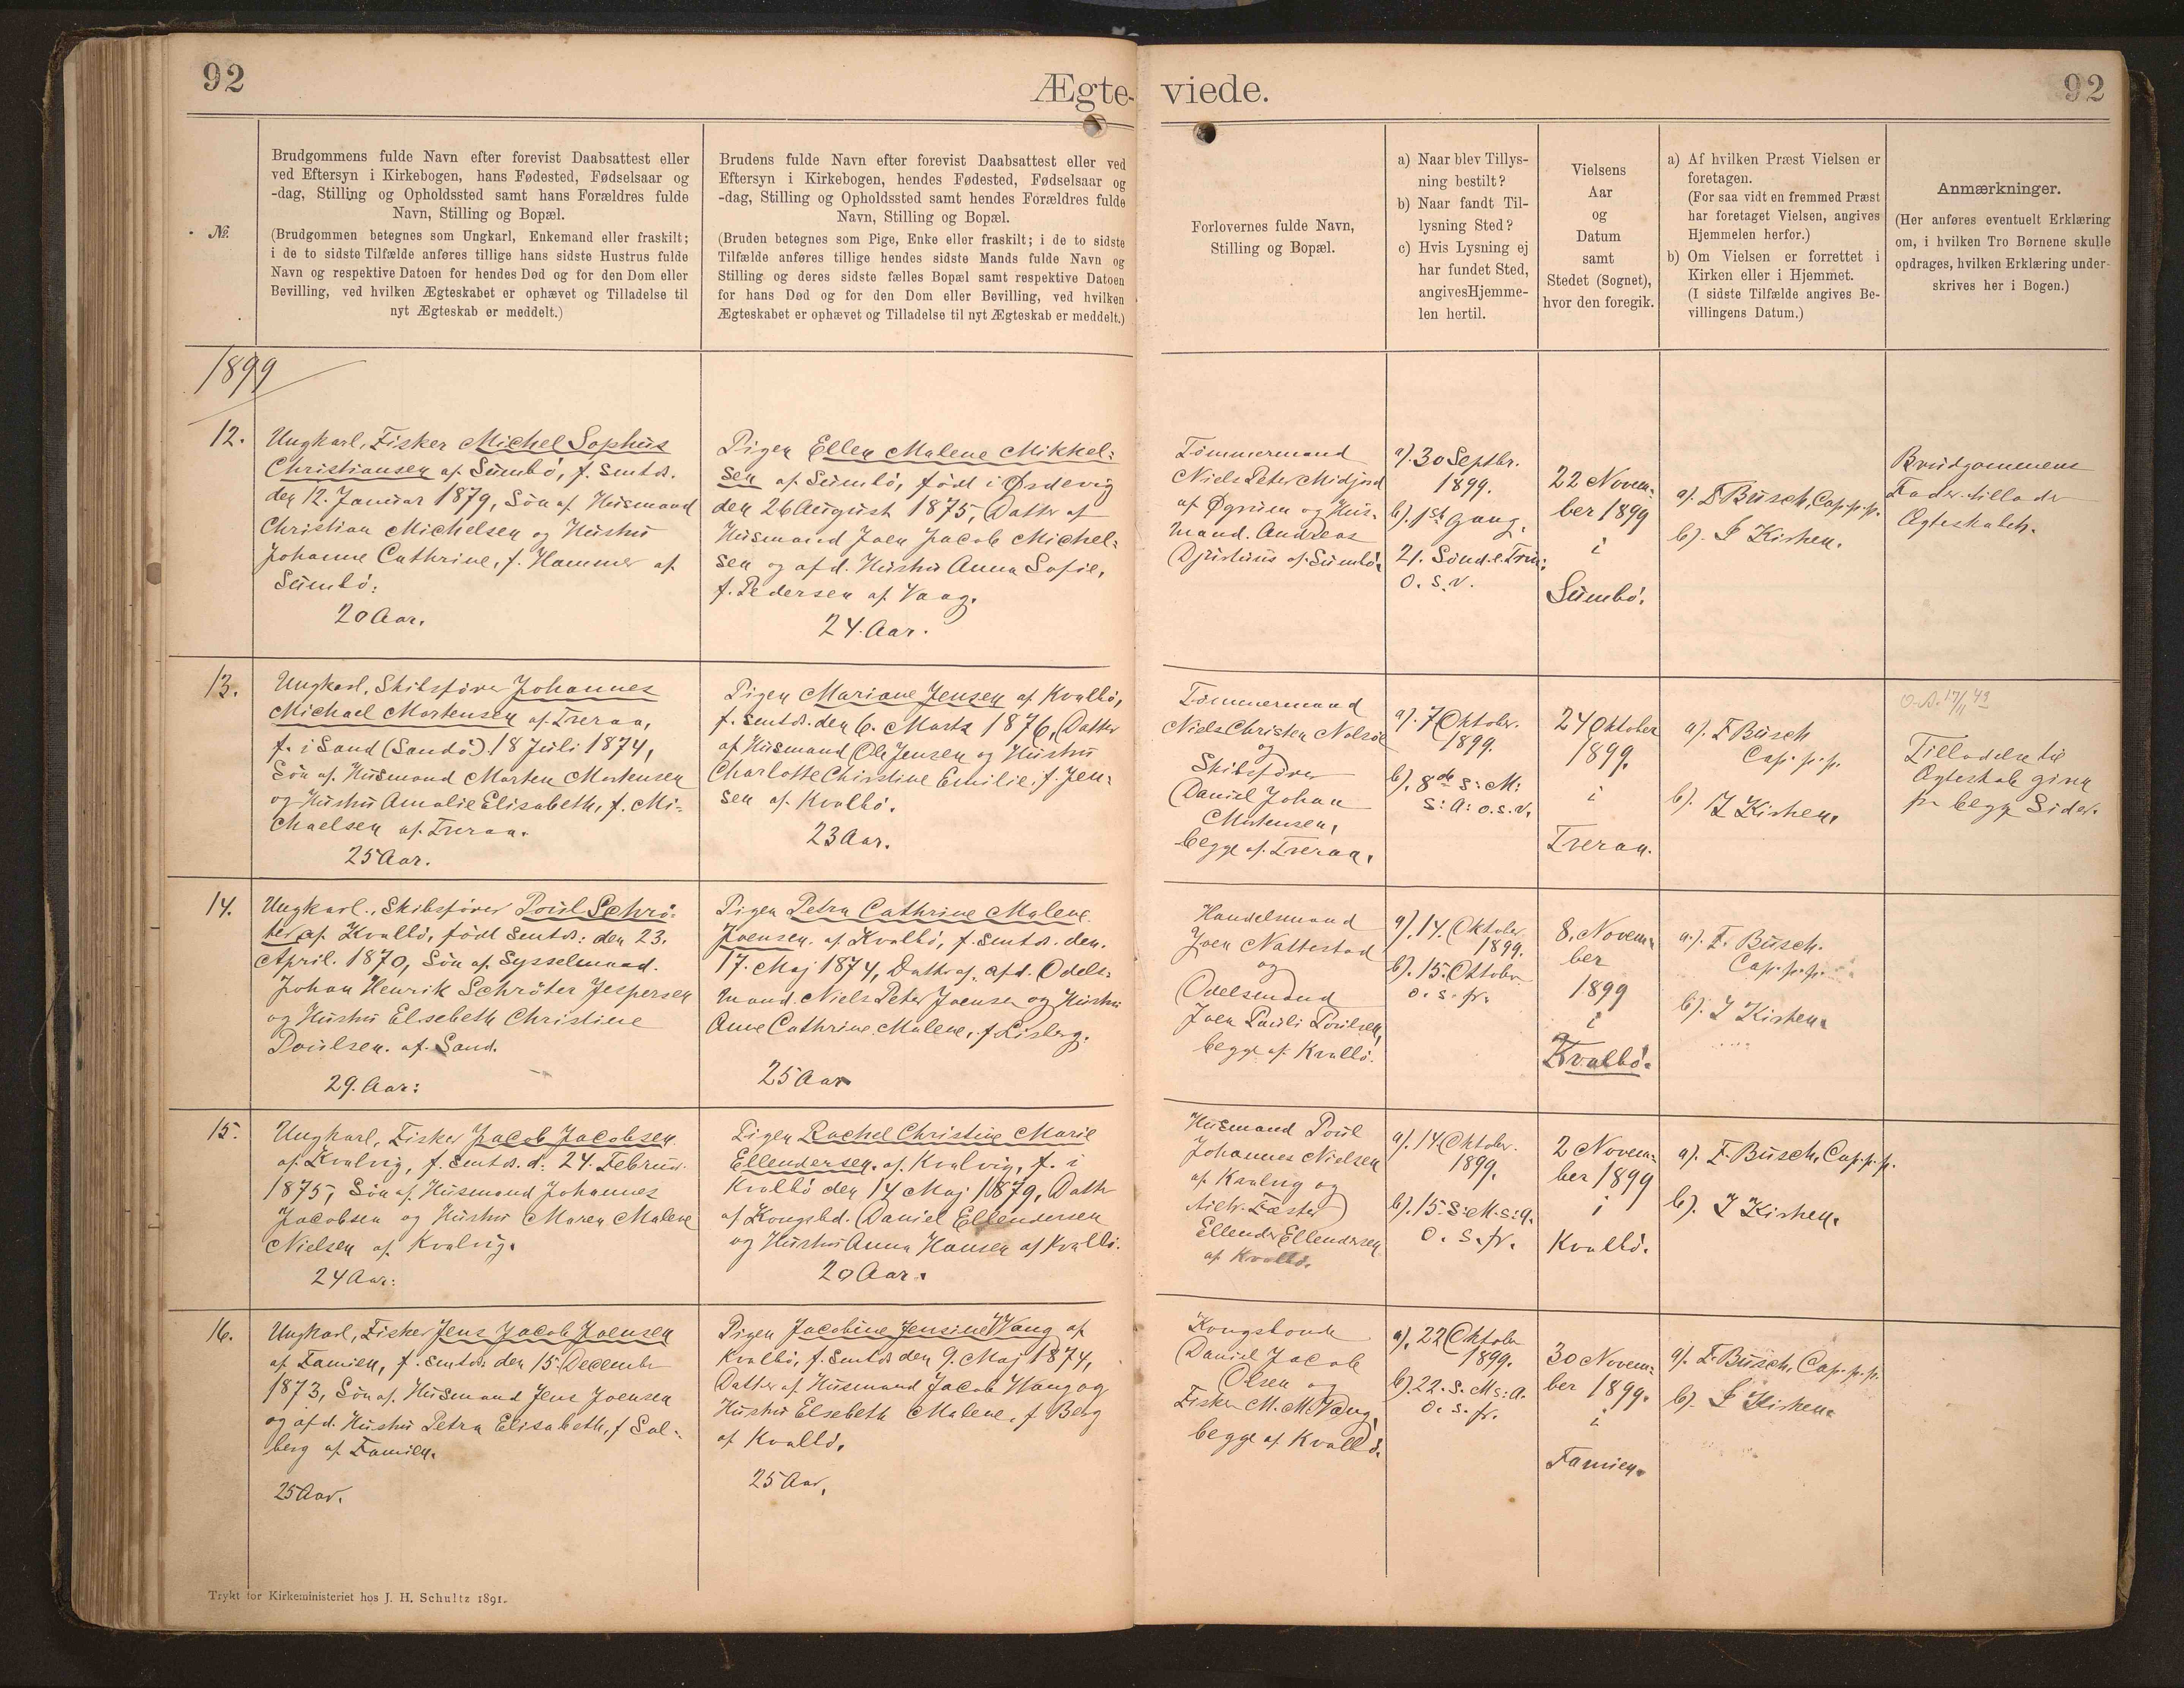 92
Ægte-
viede.
92
No.
Brudgommens fulde Navn efter forevist Daabsattest eller
ved Eftersyn i Kirkebogen, hans Fødested, Fødselsaar og
-dag, Stilling og Opholdssted samt hans Forældres fulde
Navn, Stilling og Bopæl.
(Brudgommen betegnes som Ungkarl, Enkemand eller fraskilt;
i de to sidste Tilfælde anføres tillige hans sidste Hustrus fulde
Navn og respektive Datoen for hendes Død og for den Dom eller
Bevilling, ved hvilken Ægteskabet er ophævet og Tilladelse til
nyt Ægteskab er meddelt.)
Brudens fulde Navn efter forevist Daabsattest eller ved
Eftersyn i Kirkebogen, hendes Fødested, Fødselsaar og
-dag, Stilling og Opholdssted samt hendes Forældres fulde
Navn, Stilling og Bopæl.
(Bruden betegnes som Pige, Enke eller fraskilt; i de to sidste
Tilfælde anføres tillige hendes sidste Mands fulde Navn og
Stilling og deres sidste fælles Bopæl samt respektive Datoen
for hans Død og for den Dom eller Bevilling, ved hvilken
Ægteskabet er ophævet og Tilladelse til nyt Ægteskab er meddelt.)
Forlovernes fulde Navn,
Stilling og Bopæl.
a) Naar blev Tillys-
ning bestilt?
b) Naar fandt Til-
lysning Sted?
c) Hvis Lysning ej
har fundet Sted,
angivesHjemme-
len hertil.
Vielsens
Aar
og
Datum
samt
Stedet (Sognet),
hvor den foregik.
a) Af hvilken Præst Vielsen er
foretagen.
(For saa vidt en fremmed Præst
har foretaget Vielsen, angives
Hjemmelen herfor.)
b) Om Vielsen er forrettet i
Kirken eller i Hjemmet.
(I sidste Tilfælde angives Be-
villingens Datum.)
Anmærkninger.
(Her anføres eventuelt Erklæring
om, i hvilken Tro Børnene skulle
opdrages, hvilken Erklæring under-
skrives her i Bogen.)
1899
12.
Ungkarl, Fisker Michel Sophus
Christiansen af Sumbö, f. smtds.
den 12. Januar 1879, Søn af Husmand
Christian Michelsen og Hustru
Johanne Cathrine, f. Hammer af
Sumbö:
20 Aar.
Pigen Ellen Malene Mikkel:
sen af Sumbö, født i Ørdevig
den 26 August 1875, Datter af
Husmand Joen Jacob Michel:
sen og afd. Hustru Anna Sofie,
f. Pedersen af Vaag.
24. Aar.
Tömmermand
Niels Peter Midjord
af Øgrum og Hus-
mand. Andreas
Djurhuus af Sumbö.
a). 30 Septbr.
1899.
b). 1ste Gang.
21. Sönd. e. Trin:
o. s. v.
22 Novem:
ber 1899
i
Sumbö.
a). F Busch, Cap. p. p.
b). I Kirken.
Brudgommens
Fader tillader
Ægteskabet.
13.
Ungkarl, Skibsförer Johannes
Michael Mortensen af Tveraa,
f. i Sand (Sandö) 18 Juli 1874,
Søn af Husmand Morten Mortensen
og Hustru Amalie Elisabeth, f. Mi-
chaelsen af Tveraa.
25 Aar.
Pigen Mariane Jensen af Kvalbö,
f. smtds. den 6. Marts 1876, Datter
af Husmand Ole Jensen og Hustru
Charlotte Christine Emilie, f. Jen-
sen af Kvalbö.
23 Aar.
Tömmermand
Niels Christen Nolsöe
og
Skibsförer
Daniel Johan
Mortensen,
begge af Tveraa.
a). 7 Oktober.
1899.
b). 8de S: M:
S: A: o. s. v.
24 Oktober
1899.
i
Tveraa.
a). F Busch
Cap. p. p.
b). I Kirken.
Tilladelse til
Ægteskab given
fra begge Sider.
14.
Ungkarl., Skibsförer Poul Schrö-
ter af Kvalbö, født smtds: den 23.
April. 1870, Søn af Sysselmand.
Johan Henrik Schröter Jespersen
og Hustru Elsebeth Christine
Poulsen. af Sand.
29. Aar:
Pigen Petra Cathrine Malene
Joensen. af Kvalbö, f. smtds. den.
17. Maj 1874, Datter af. afd. Odels-
mand. Niels Peter Joensen og Hustru
Anne Cathrine Malene, f. Lisberg.
25 Aar
Handelsmand
Joen Nattestad
og
Odelsmand
Joen Pauli Poulsen,
begge af Kvalbö.
a). 14. Oktober
1899.
b). 15. Oktober
o. s. fr.
8. Novem-
ber
1899
i
Kvalbö.
a). F. Busch.
Cap. p. p.
b). I Kirken.
15.
Ungkarl, Fisker Jacob Jacobsen
af Kvalvig, f. smtds. d. 24. Februar
1875, Søn af. Husmand Johannes
Jacobsen og Hustru Maren Malene
Nielsen af Kvalvig.
24 Aar:
Pigen Rachel Christine Marie
Ellendersen. af Kvalvig, f. i
Kvalbö den 14 Maj 1879, Datter
af Kongsbd. Daniel Ellendersen
og Hustru Anna Hansen af Kvalbö.
20 Aar.
Husmand Poul
Johannes Nielsen
af Kvalvig og
Fæster
Ellender Ellendersen
af Kvalbö.
a). 14 Oktober.
1899.
b). 15. S: M. s: A.
o. s. fr.
2 Novem:
ber 1899
i
Kvalbö.
a). F. Busch, Cap. p. p.
b). I Kirken.
16.
Ungkarl, Fisker Jens Jacob Joensen
af Famien, f. smtds: den 15. December
1873, Søn af. Husmand Jens Joensen
og afd. Hustru Petra Elisabeth, f Sol-
berg af Famien.
25 Aar.
Pigen Jacobine Jensine Wang af
Kvalbö, f. smtds den 9. Maj 1874,
Datter af Husmand Jacob Wang og
Hustru Elsebeth Malene, f Berg
af Kvalbö.
25 Aar,
Kongsbonde
Daniel Jacob
Olsen og
Fisker M. M. Wang,
begge af Kvalbö.
a). 22 Oktober
1899.
b). 22. S. M s: A.
o. s. fr.
30 Novem-
ber 1899.
i
Famien.
a). F. Busch, Cap. p. p.
b). I Kirken.
Trykt for Kirkeministeriet hos J. H. Schultz 1891.